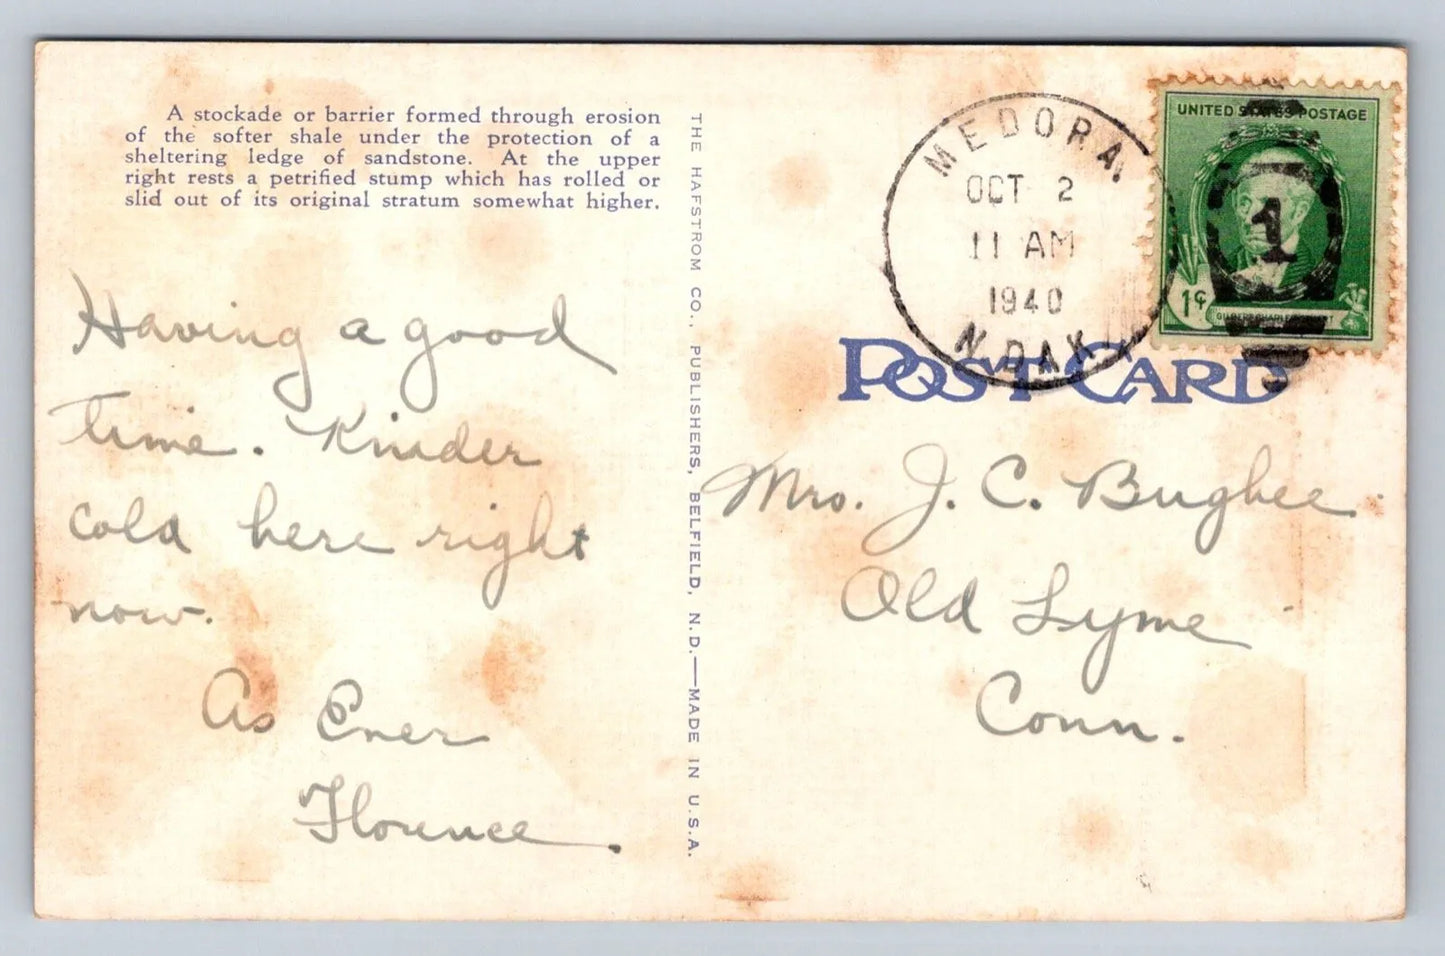 A stockade or barrier formed through erosion
of the softer shale under the protection of a
sheltering ledge of sandstone. At the upper
right rests a petrified stump which has rolled or
slid out of its original stratum somewhat higher.
Having a good
time. Kinder
cold here right
now.
As Ever
Florence.
THE HAFSTROM CO., PUBLISHERS, BELFIELD, N.D.—MADE IN U.S.A.
MEDORA,
OCT 2
11 AM
1940
N. DAK.
UNITED STATES POSTAGE
1
1¢
GILBERT CHARLES STUART
POST CARD
Mrs. J. C. Bugbee.
Old Lyme
Conn.